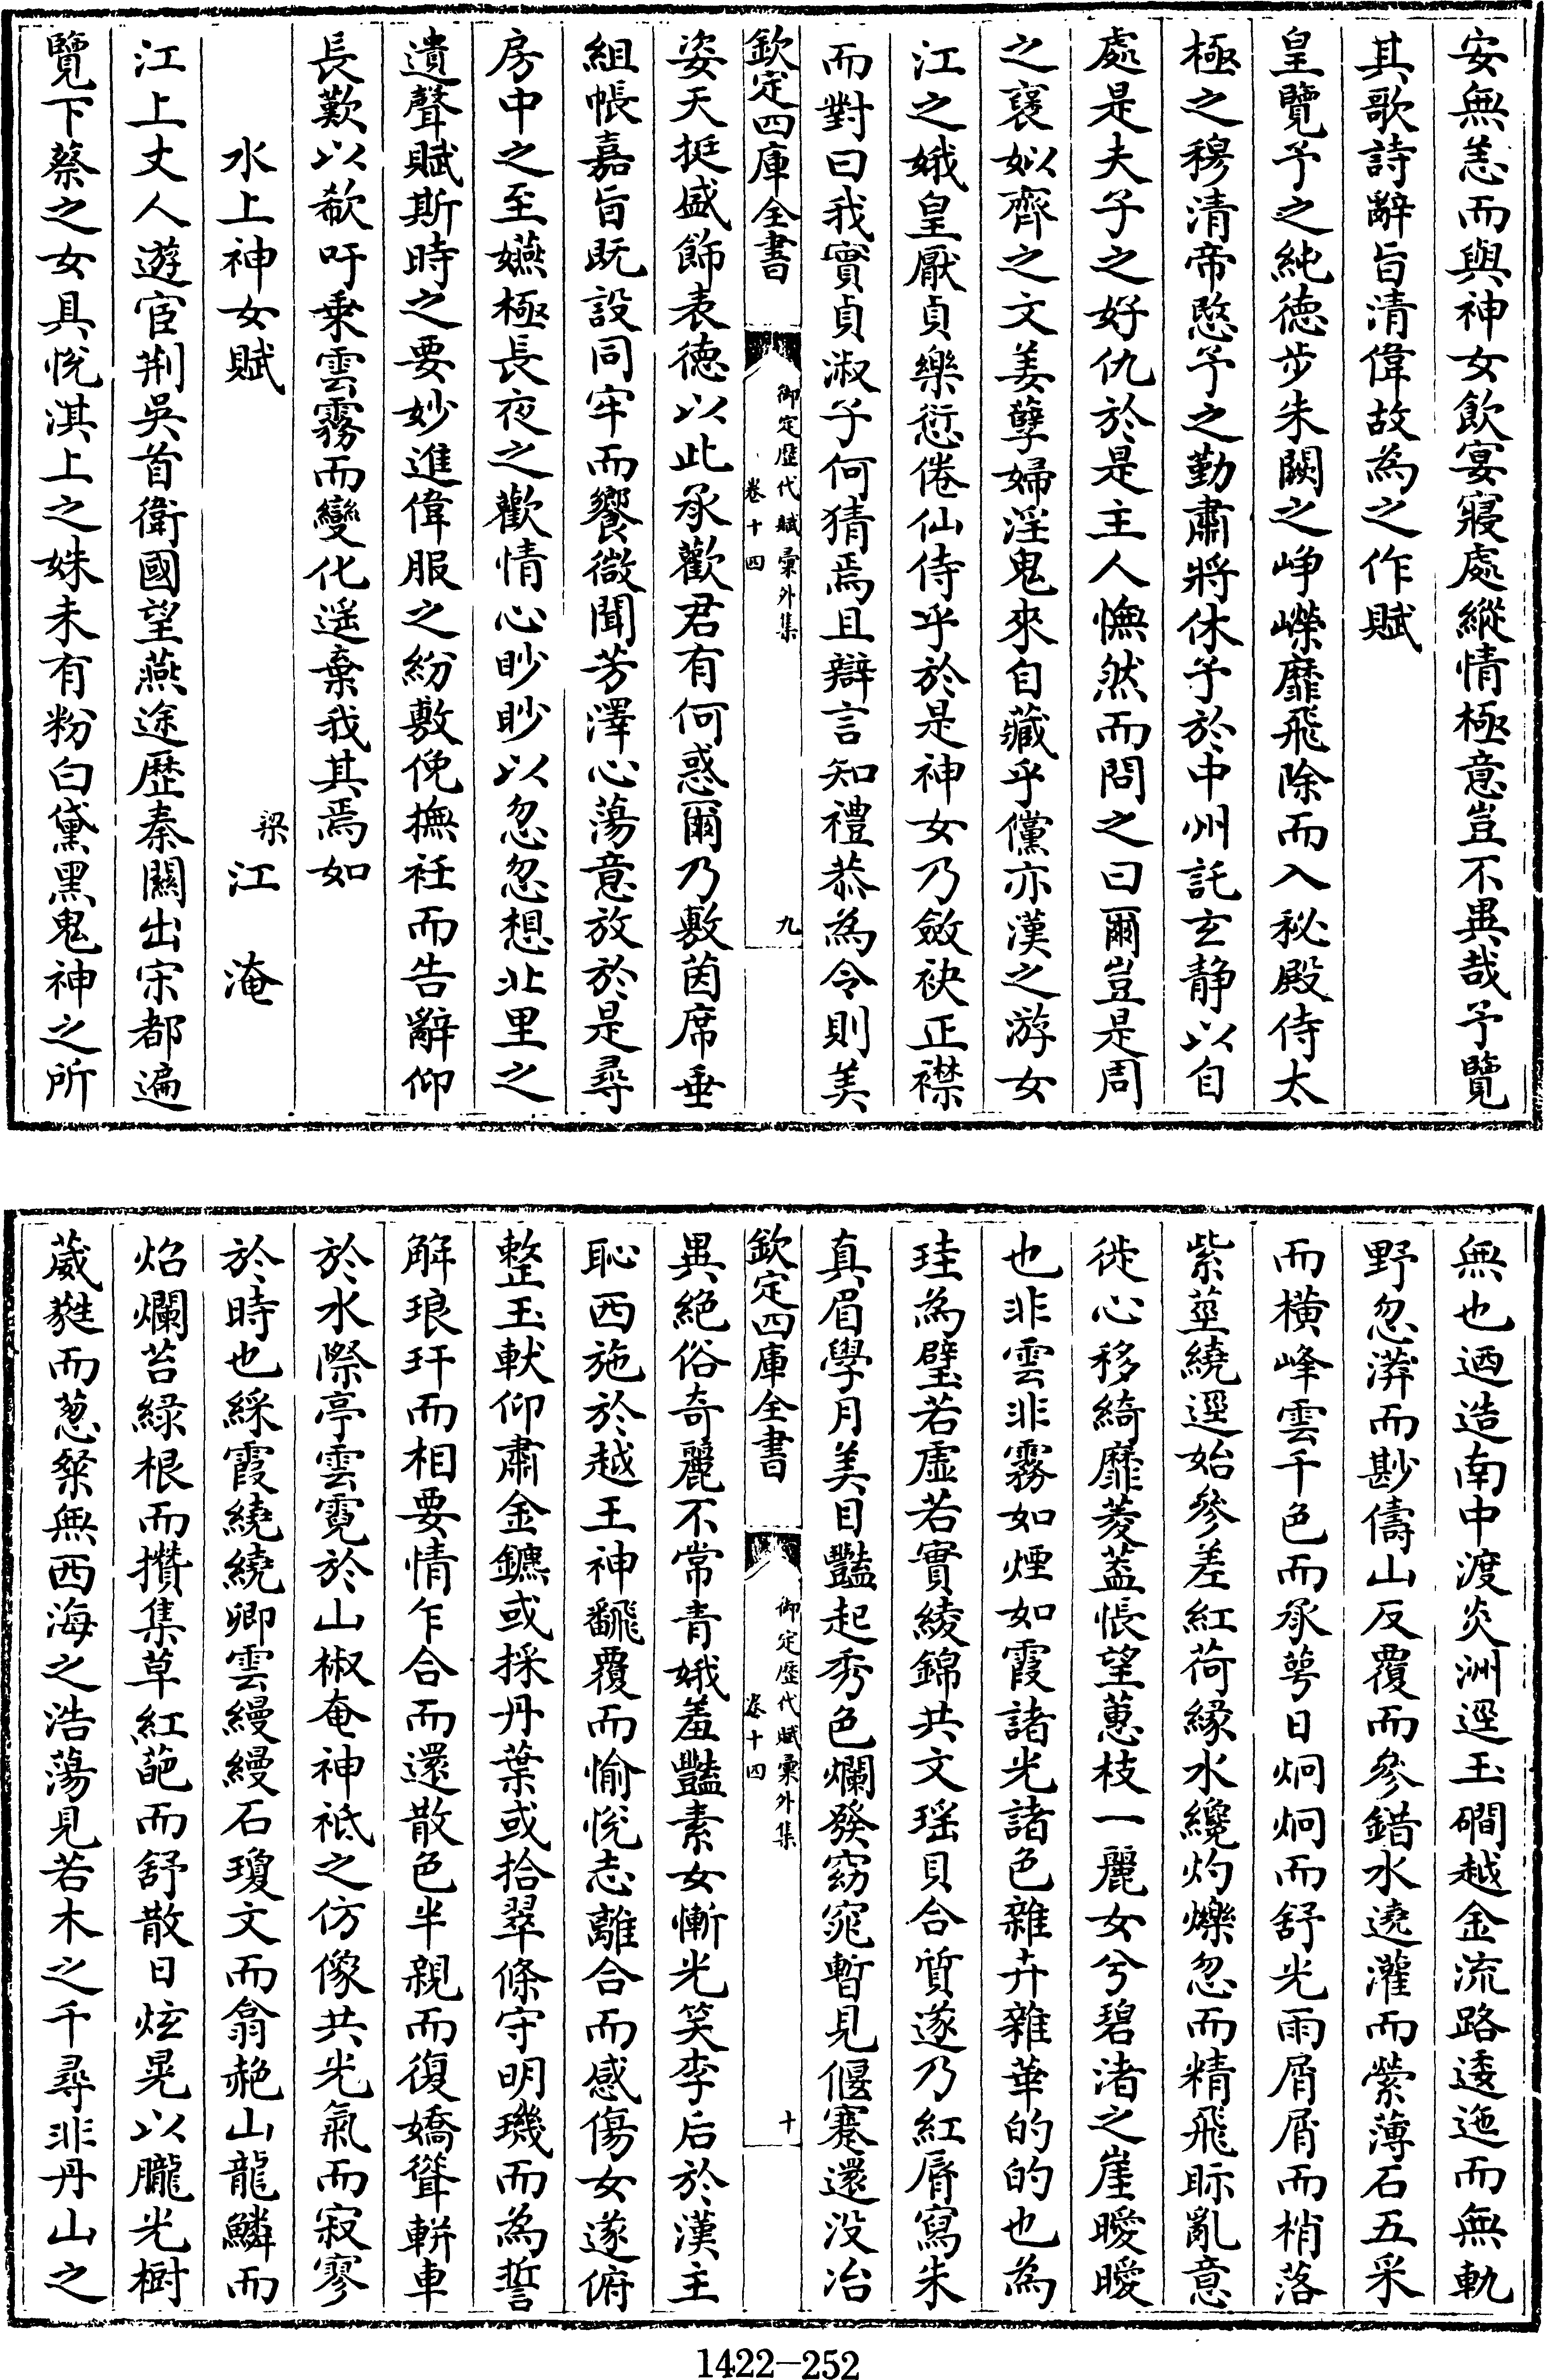 安無恙而與神女飲宴寢處縱情極意豈不異哉予覽
其歌詩辭旨清偉故為之作賦
皇覽予之純德步朱闕之崢嶸靡飛除而入秘殿侍太
極之穆清帝愍予之勤肅將休予於中州託玄静以自
處是夫子之好仇於是主人憮然而問之曰爾豈是周
之褒姒齊之文姜孽婦淫鬼來自藏乎儻亦漢之游女
江之娥皇厭貞樂愆倦仙侍乎於是神女乃斂袂正襟
而對曰我實貞淑子何猜焉且辯言知禮恭為令則美
欽定四庫全書
御定歴代賦彙外集
卷十四
九
姿天挺盛飾表德以此承歡君有何惑爾乃敷茵席垂
組帳嘉旨既設同牢而饗微聞芳澤心蕩意放於是尋
房中之至嬿極長夜之歡情心眇眇以忽忽想北里之
遺聲賦斯時之要妙進偉服之紛敷俛撫衽而告辭仰
長歎以欷吁乗雲霧而變化遥棄我其焉如
水上神女賦
梁江淹
江上丈人遊宦荆吳首衛國望燕途歴秦關出宋都遍
覽下蔡之女具悅淇上之姝未有粉白黛黑鬼神之所
無也迺造南中渡炎洲逕玉磵越金流路逶迤而無軌
野忽漭而尠儔山反覆而參錯水遶灌而縈薄石五采
而横峰雲千色而承萼日炯炯而舒光雨屑屑而梢落
紫莖繞逕始參差紅荷緣水纔灼爍忽而精飛眎亂意
徙心移綺靡菱蓋悵望蕙枝一麗女兮碧渚之崖曖曖
也非雲非霧如煙如霞諸光諸色雜卉雜華的的也為
珪為璧若虛若實綾錦共文瑶貝合質遂乃紅脣寫朱
真眉學月美目豔起秀色爛發窈窕暫見偃蹇還没冶
欽定四庫全書
御定歴代賦彙外集
卷十四
十
異絶俗奇麗不常青娥羞豔素女慚光笑李后於漢主
恥西施於越王神翻覆而愉悅志離合而感傷女遂俯
整玉軑仰肅金鑣或採丹葉或拾翠條守明璣而為誓
解琅玕而相要情乍合而還散色半親而復嬌聳軿車
於水際亭雲霓於山椒奄神祗之仿像共光氣而寂寥
於時也綵霞繞繞卿雲縵縵石瓊文而翕赩山龍鱗而
焰爛苔緑根而攢集草紅葩而舒散日炫晃以朧光樹
葳蕤而葱粲無西海之浩蕩見若木之千尋非丹山之
1422—252